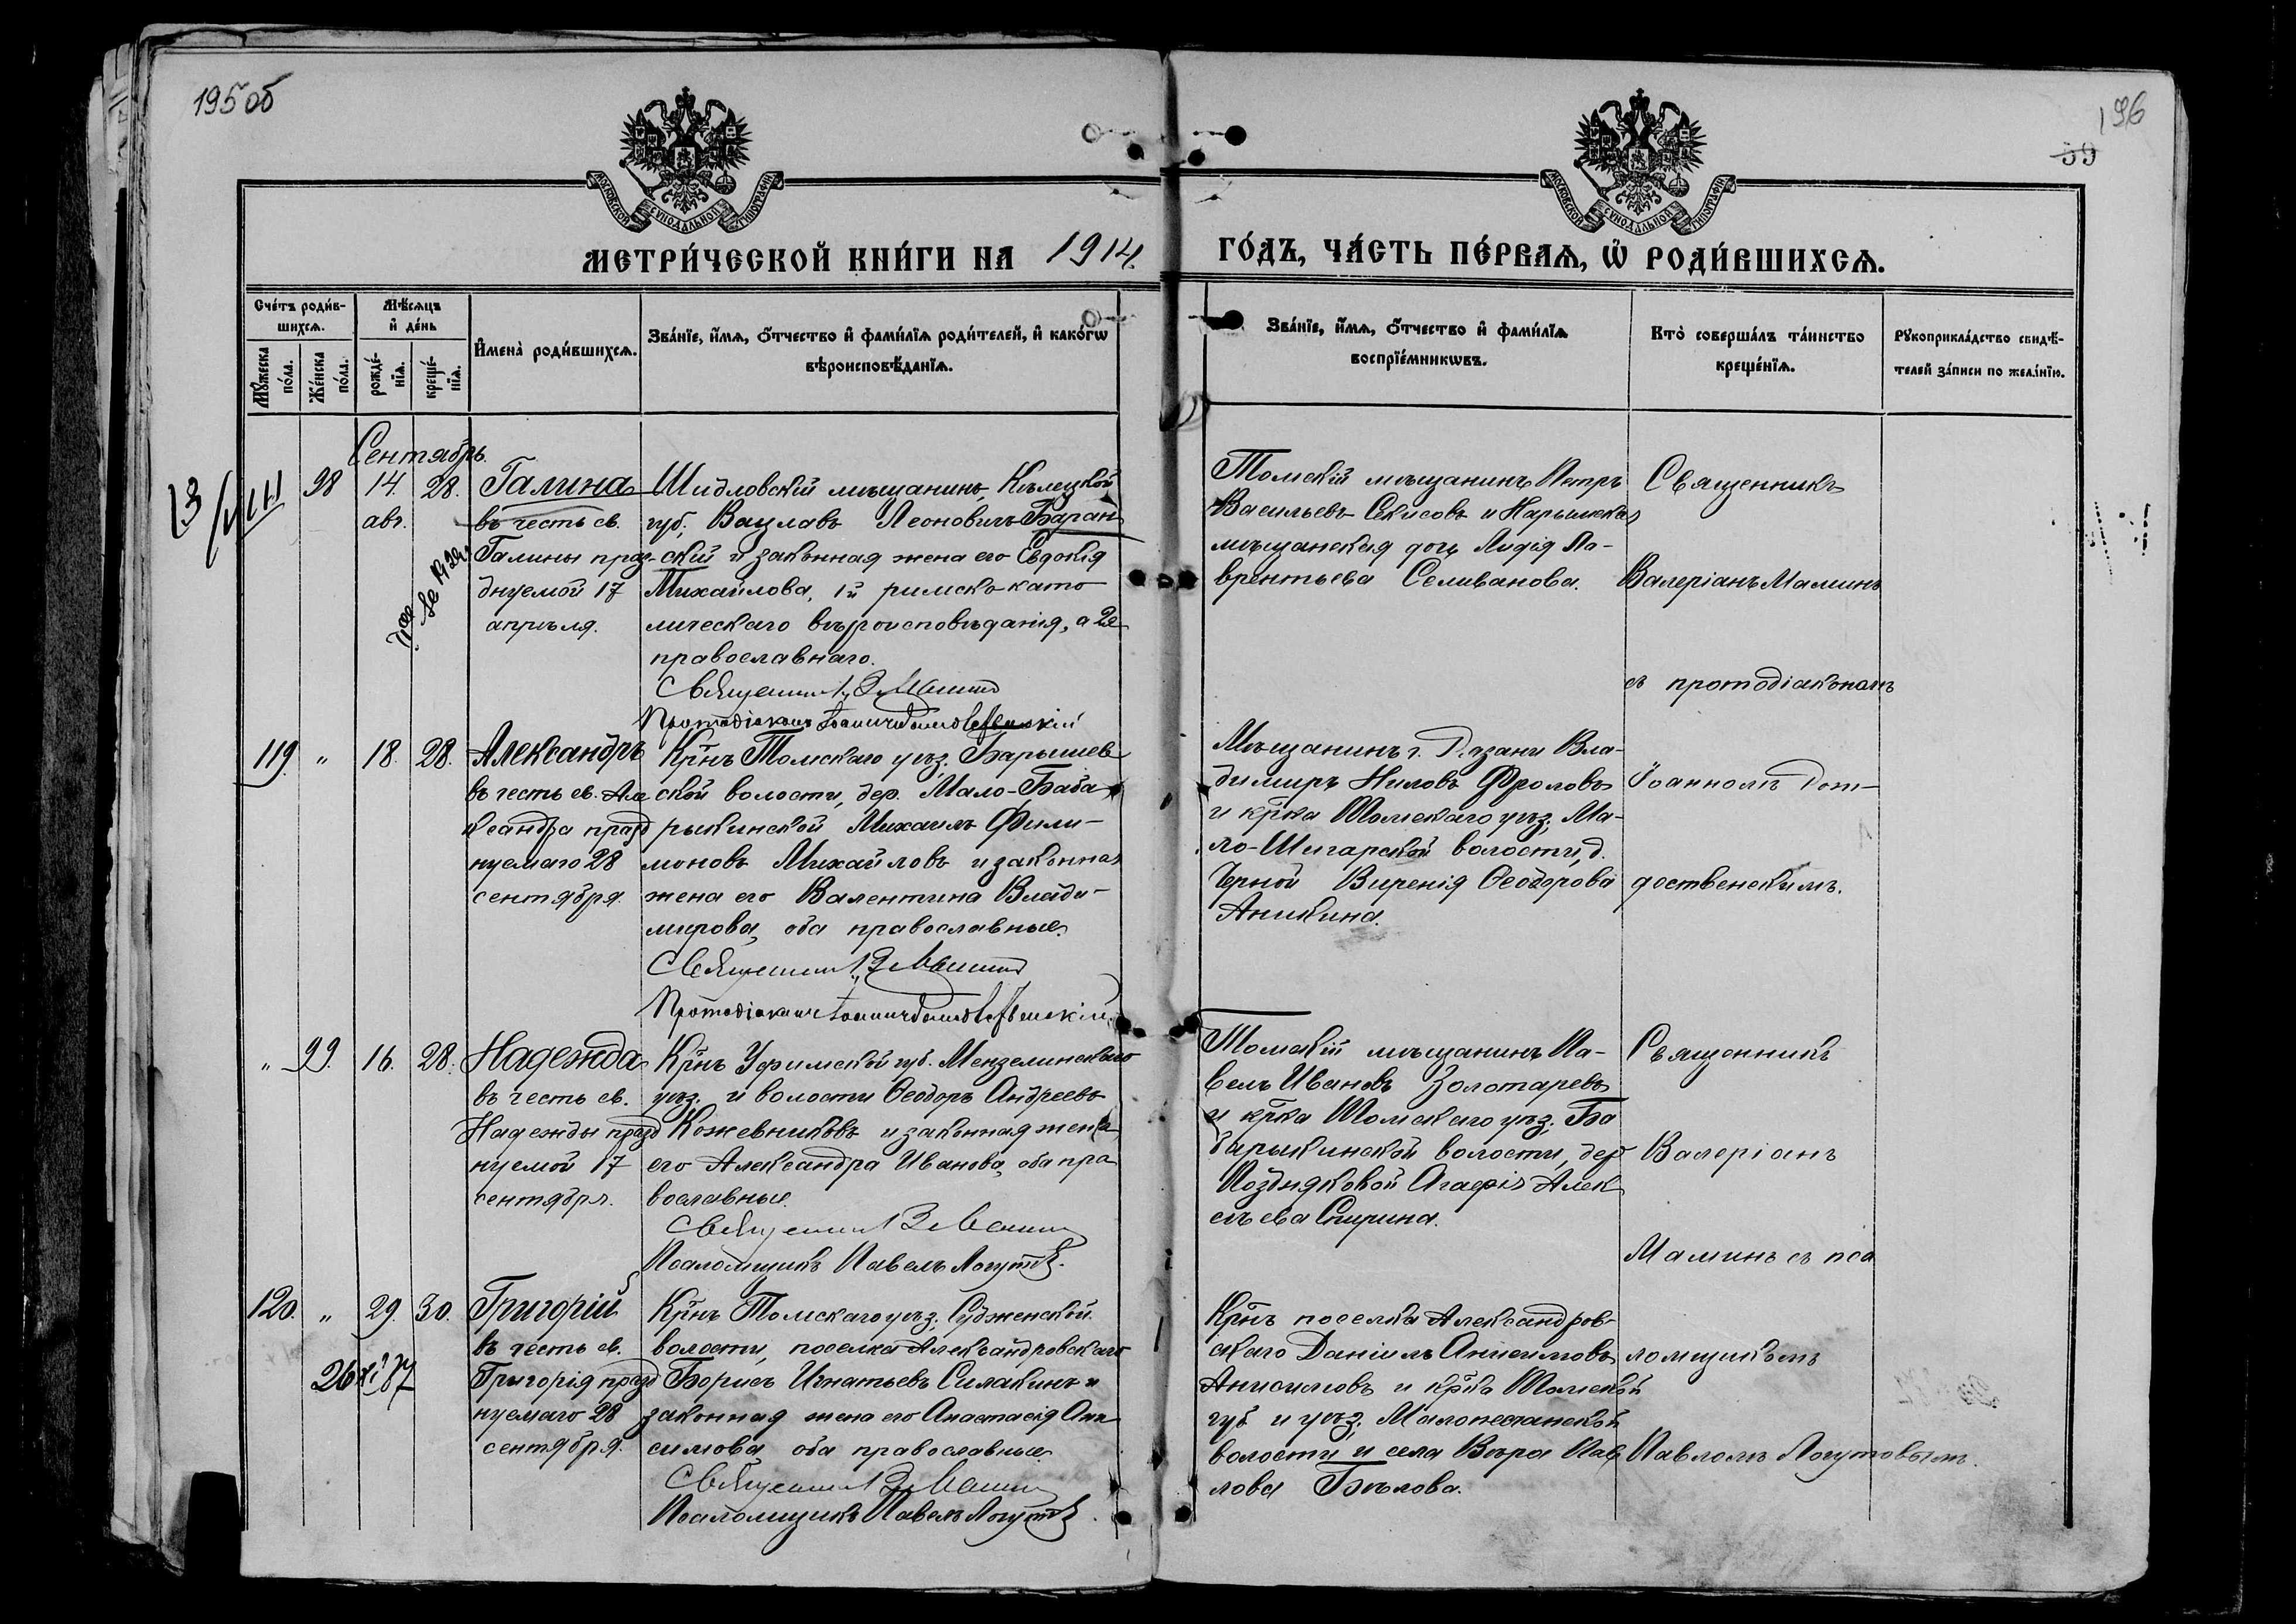 195 об
196
59
МОСКОВСКОЙ СУНОДАЛЬНОЙ ТИПОГРАФІИ
МОСКОВСКОЙ СУНОДАЛЬНОЙ ТИПОГРАФІИ
МЕТРИ́ЧЕСКОЙ КНИ́ГИ НА 1914.
ГО́ДЪ, ЧА́СТЬ ПЕ́РВАѦ, Ѡ҆ РОДИ́ВШИХСѦ.
Сче́тъ роди́в-
шихсѧ.
Мꙋ́жеска
по́ла.
Же́нска
по́ла.
Мѣ́сѧцъ
и҆ де́нь
рожде́-
нїѧ.
креще́-
нїѧ.
И҆мена̀ роди́вшихсѧ.
Зва́нїе, и҆́мѧ, ѻ҆́тчество и҆ фами́лїѧ роди́телей, и҆ како́гѡ
вѣроисповѣ́данїѧ.
Зва́нїе, и҆́мѧ, ѻ҆́тчество и҆ фами́лїѧ
воспрїе́мникѡвъ.
Кто̀ соверша́лъ та́инство
креще́нїѧ.
Рꙋкоприкла́дство свидѣ́-
телей за́писи по жела́нїю.
Сентябрь.
98
14.
авг.
28.
Галина
въ честь св.
Галины праз-
днуемой 17
апрѣля.
Шидловскій мѣщанинъ, Кѣлецкой
губ. Вацлавъ Леоновичъ Баран-
скій и законная жена его Евдокія
Михайлова, 1й римско-като
лическаго вѣроисповѣданія, а 2я
православнаго.
Священникъ В. Маминъ
Протодіаконъ Іоаннъ
Томскій мѣщанинъ Петръ
Васильевъ и Нарымская
мѣщанская дочь Лидія Ла-
врентьева Селиванова.
Священникъ
Валеріанъ Маминъ
съ протодіакономъ
119.
"
18.
28.
Александръ
въ честь св. Але
ксандра празд
нуемаго 28
сентября.
Крнъ Томскаго уѣз. Барышев
ской волости, дер. Мало-Баба
рыкинской Михаилъ Фили-
моновъ Михайловъ и законная
жена его Валентина Влади-
мирова, оба православные.
Священникъ В. Маминъ
Протодіаконъ Іоаннъ
Мѣщанинъ г. Рязани Вла-
димиръ Ниловъ Фроловъ
и крка Томскаго уѣз. Ма-
ло-Шигарской волости, д.
Черной Виренія Ѳеодорова
Аникина.
Іоанномъ
доственскимъ.
"
99.
16.
28.
Надежда
въ честь св.
Надежды празд
нуемой 17
сентября.
Крнъ Уфимской губ. Мензелинскаго
уѣз. и волости Ѳеодоръ Андреевъ
Кожевниковъ и законная жена
его Александра Иванова, оба пра
вославные.
Священникъ В. Маминъ
Псаломщикъ Павелъ Логутовъ.
Томскій мѣщанинъ Па-
велъ Ивановъ Золотаревъ
и крка Томскаго уѣз. Ба
барыкинской волости, дер
Поздняковой Агафія Алек
сѣева Спирина.
Священникъ
Валеріанъ
Маминъ съ пса
120.
"
29.
30.
Григорій
въ честь св.
Григорія празд
нуемаго 28
сентября.
Крнъ Томскаго уѣз. Судженской
волости, поселка Александровскаго
Борисъ Игнатьевъ Силакинъ и
законная жена его Анастасія Ани
симова оба православные.
Священникъ В. Маминъ
Псаломщикъ Павелъ Логутовъ.
Крнъ поселка Александров-
скаго Даніилъ Анисимовъ
Анисимовъ и крка Томской
губ и уѣз. Малопесчанской
волости и села Вѣра Пав
лова Бѣлова.
ломщикомъ
Павломъ Логутовымъ.